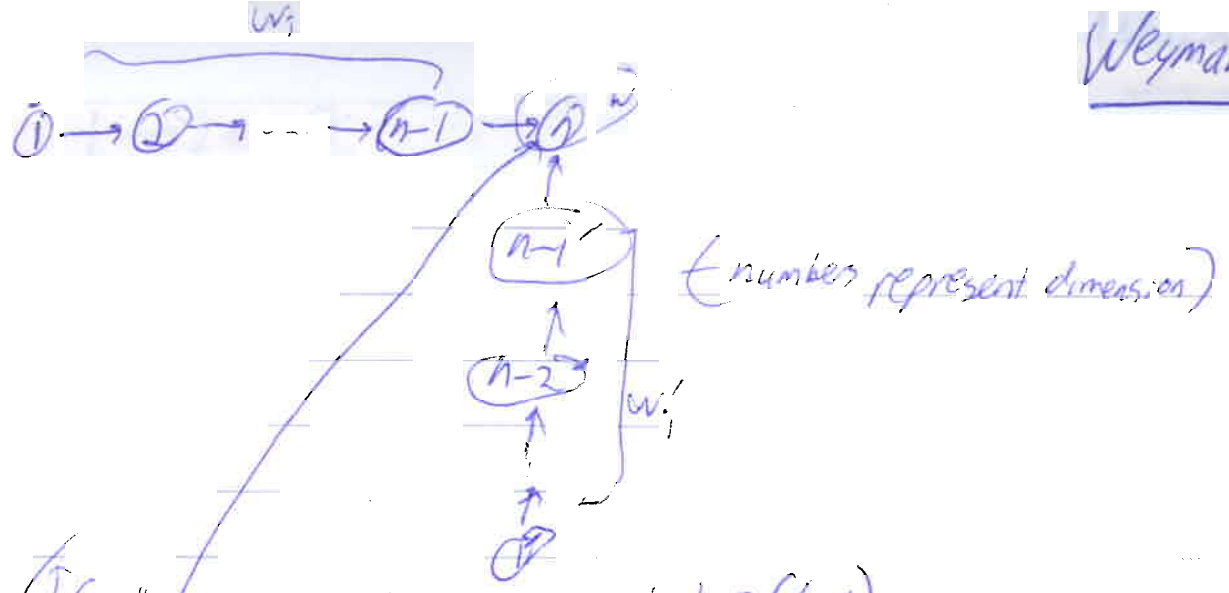 Weyma
w_i
1 → 2 → --- → n-1 → n w
n-1
(numbers represent dimension)
n-2
w_i'
1